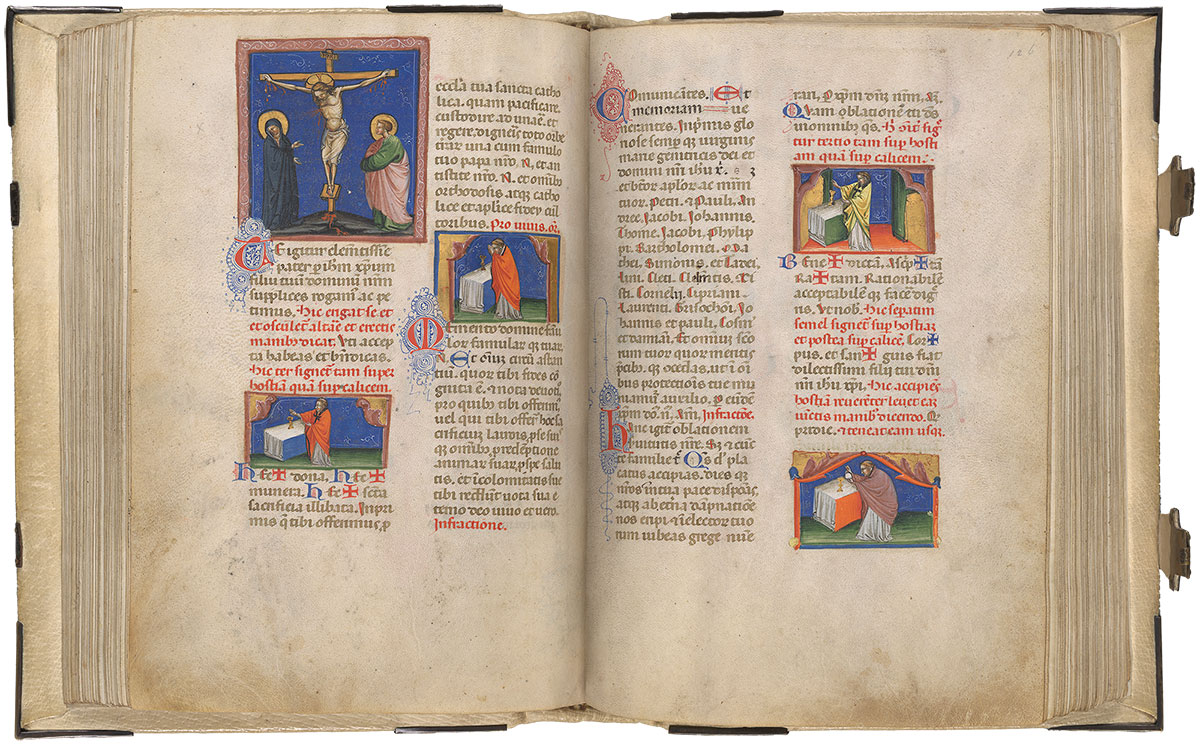 E igitur clementissime
pater p ihm xpum
filiu tuu dominu nrm
supplices rogam ac pe
timus. Hic erigat se et
et osculet altare et erectis
manib dicat. Uti accepta
habeas et bndicas.
Hic ter signet tam super
hostiam qua sup calicem.
Hec dona. Hec
munera. Hec scta
sacrificia illibata. Inpri
mis q tibi offerimus, p
eccla tua sancta catho
lica. quam pacificare.
custodire ad unare. et
regere. digneris toto orbe
terrar una cum famulo
tuo papa nro. N. et an
tistite nro. N. et omnib
orthodosis. atq catho
lice et aplice fidey cul
toribus. Pro vivis. or.
Memento domine fau
lor famular q tuar.
N. Et oniu circu astan
tiu. quor tibi fides co
gnita e. & nota devotio
pro quib tibi offerimus
vel qui tibi offert hoc sa
crificiuz laudis. p se suis
q omnib, p redeptione
animar suar, p spe salu
tis. et icolomitatis sue
tibi reddut vota sua e
terno deo vivo et vero.
Infractione.
Comunicantes. Et
memoriam ve
nerantes. Inprimis glo
riose semper q virginis
marie genitricis dei et
domini nri ihu x.
et btor aplor ac mrm
tuor. Petri. & Pauli. An
dree. Jacobi. Johannis.
Thome. Jacobi. Phylip
pi. Bartholomei. Ma
thei. Simonis. et Tadei.
Lini. Cleti. Clemtis. Si
sti. Cornelii. Cipriani.
Laurenti. Grisochoi. Jo
hannis et pauli. Cosme
et damiani. Et omniu sco
rum tuor quor meritis
pcib, q ocedas. ut i oi
bus protectionis tue mu
niamur auxilio. p eude
xpm dn n. Am. Infractione.
Hanc igit oblationem
servitutis nre. Sz & cuc
te familie t. Qs dne pla
catus accipias. dies q
nros in tua pace disponas,
atq ab eterna dapnatione
nos eripi & i elector tuo
rum iubeas grege nume
126
rari, p xpm dnz nrm, am.
Quam oblatione tu ds
in omnib, qs. Hic sig
tur tertio tam sup hosti
am qua sup calicem.
Bene dictam, Ascrip tam
Ra tam. Rationabile
acceptabile q facere dig
ris. Ut nob. Hic separatim
semel signet sup hostiaz
et postea sup calice. Cor
pus. et san guis fiat
dilectissimi filii tui dni
nri ihu xpi. Hic accipiens
hostiam reverenter levet ea
iunctis manib dicendo. Q
pridie. & teneat eam usq.